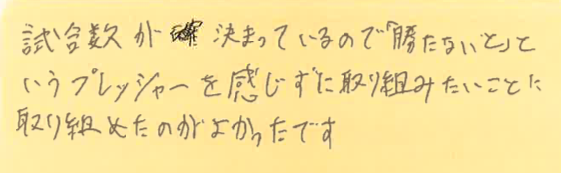 試合数が決まっているので「勝たないと」と
いうプレッシャーを感じずに取り組みたいことに
取り組めたのがよかったです